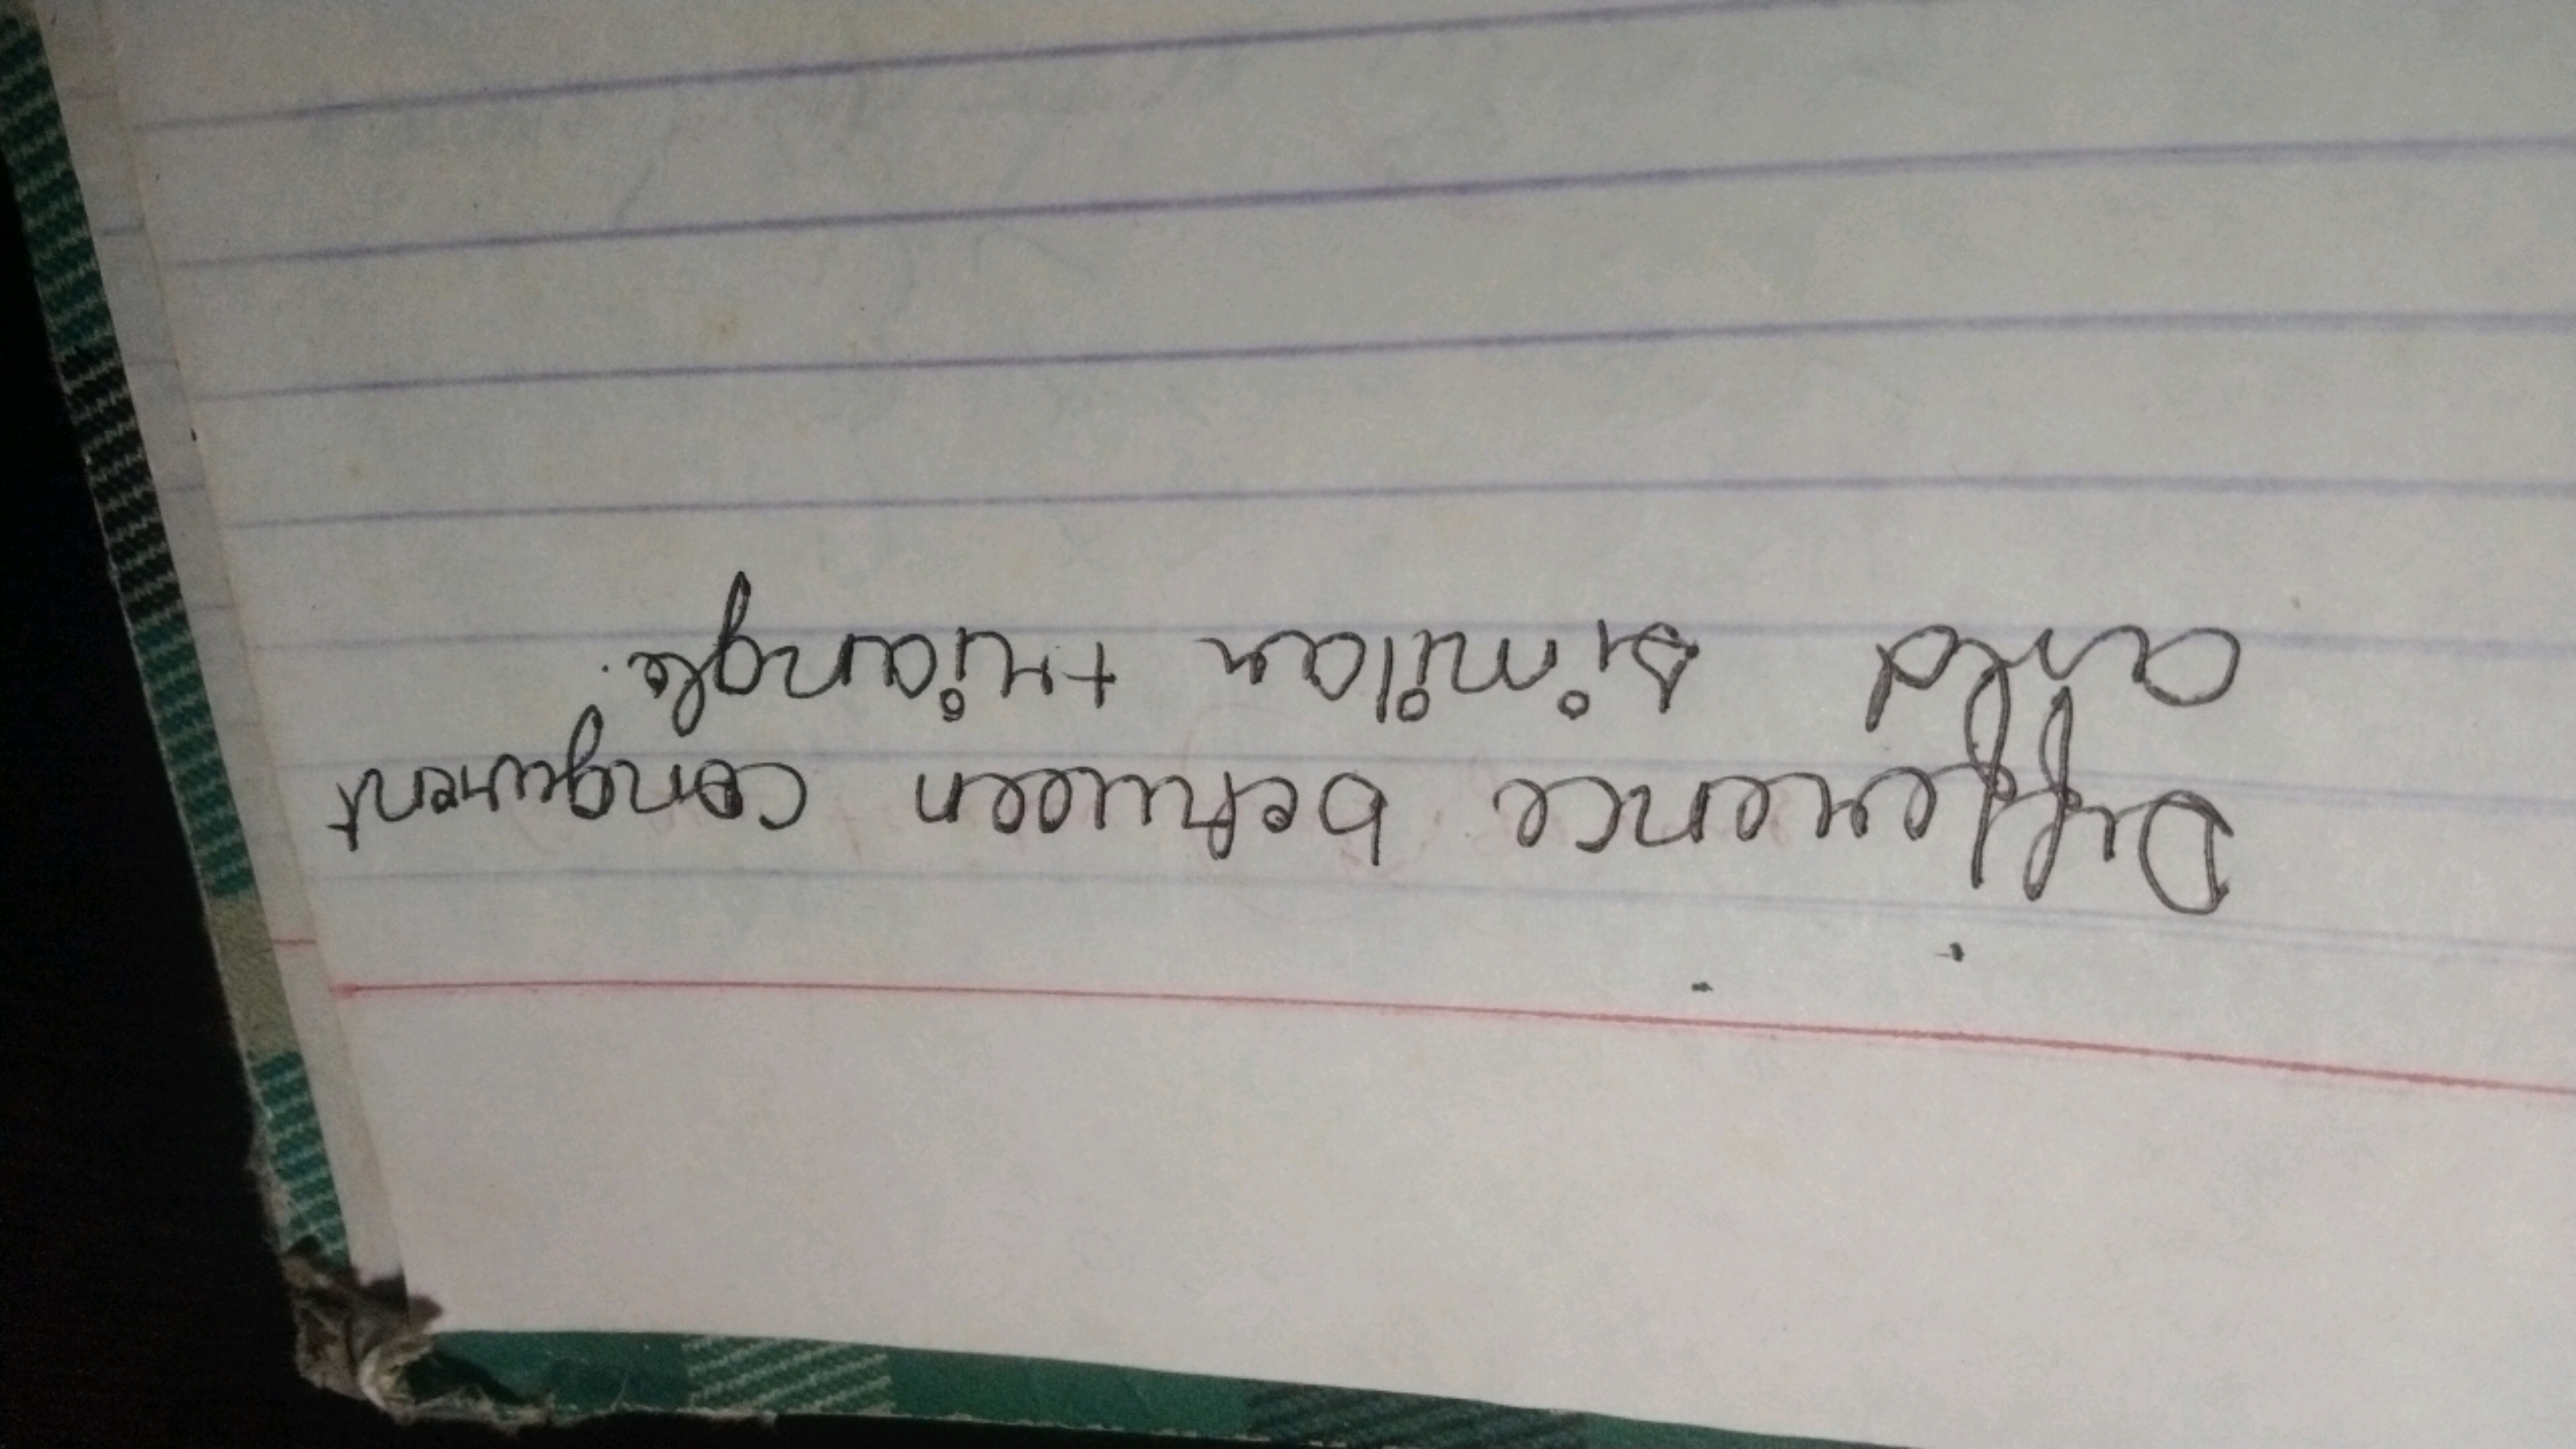 Difference between congurent
and similar triangle.